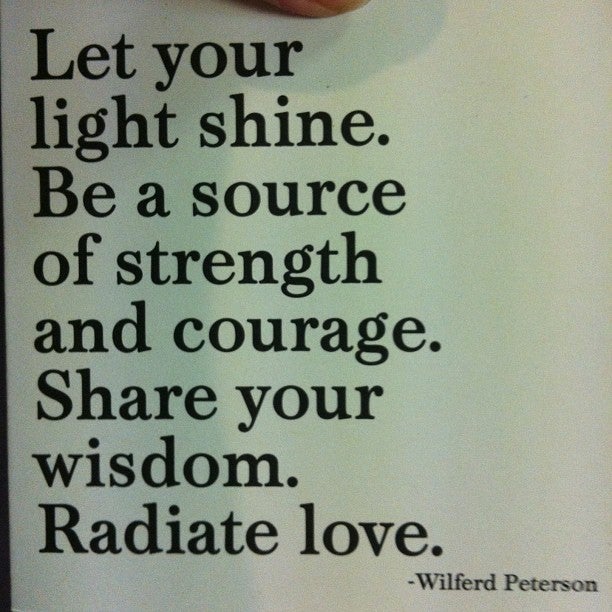 Let your
light shine.
Be a source
of strength
and courage.
Share your
wisdom.
Radiate love.
-Wilferd Peterson